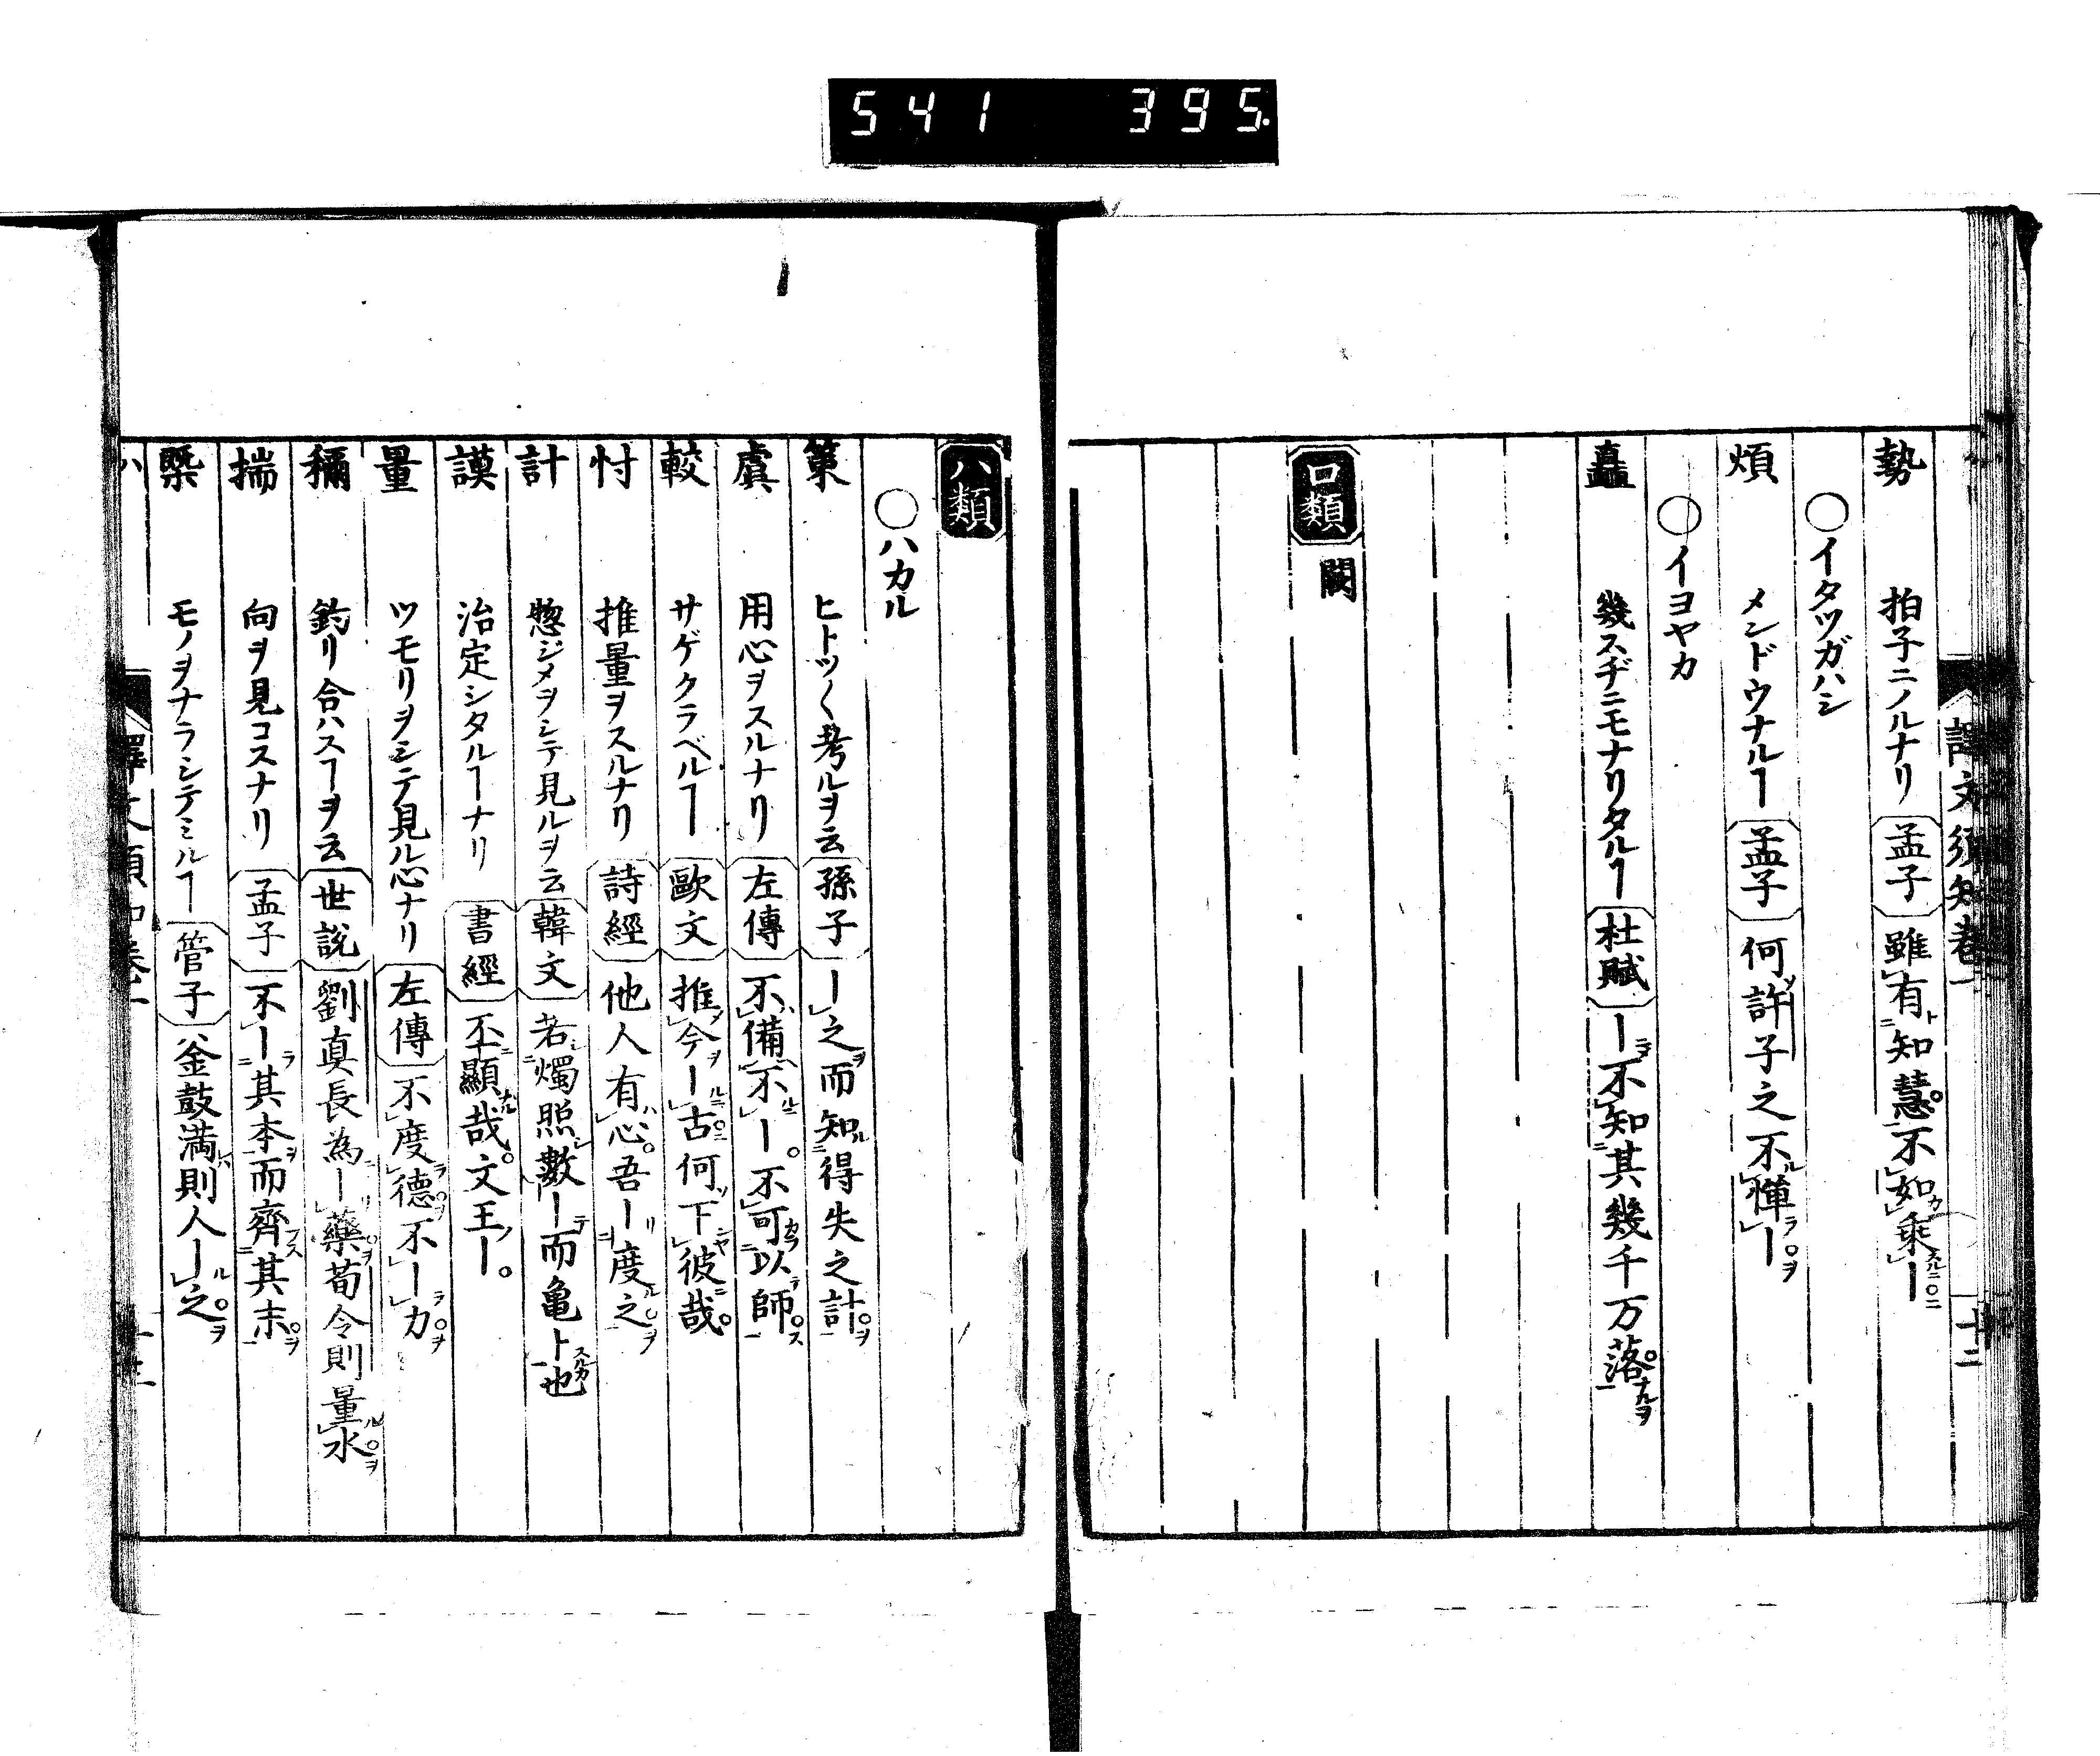 541 395.
譯文須知卷一 十二
勢 拍子ニノルナリ 孟子 雖有知慧不如乘ー
○イタツガハシ
煩 メンドウナルヿ 孟子 何許子之不憚ー
○イヨヤカ
矗 幾スヂニモナリタルヿ 杜賦 ー不知其幾千万落
口類 闕
ハ類
○ハカル
策 ヒトツ〱考ルヲ云 孫子 ー之而知得失之計
虞 用心ヲスルナリ 左傳 不備不ー不可以師
較 サゲクラベルヿ 歐文 推今ー古何下彼哉
忖 推量ヲスルナリ 詩經 他人有心吾ー度之
計 惣ジメヲシテ見ルヲ云 韓文 若燭照數ー而亀卜也
謨 治定シタルヿナリ 書經 丕顯哉文王ー
量 ツモリヲシテ見ル心ナリ 左傳 不度德不ー力
稱 釣リ合ハスヿヲ云 世説 劉真長為ー藥荀令則量水
揣 向ヲ見コスナリ 孟子 不ー其本而齊其末
槩 モノヲナラシテミルヿ 管子 釜鼓満則人ー之
ハ